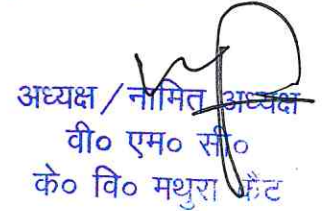 अध्यक्ष / नामित अध्यक्ष
वी० एम० सी०
के० वि० मथुरा कैंट